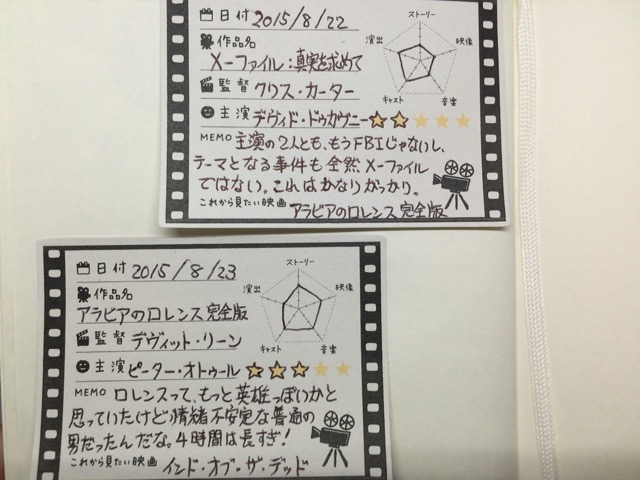 日付 2015/8/22
ストーリー
演出 映像
キャスト 音楽
作品名
X-ファイル:真実を求めて
監督 クリス・カーター
主演 デヴィド・ドゥカヴニー
MEMO 主演の2人とも、もうFBIじゃないし、
テーマとなる事件も全然X-ファイル
ではない。これはかなりがっかり。
これから見たい映画 アラビアのロレンス完全版
日付 2015/8/23
ストーリー
演出 映像
キャスト 音楽
作品名
アラビアのロレンス完全版
監督 デヴィット・リーン
主演 ピーター・オトゥール
MEMO ロレンスって、もっと英雄っぽいかと
思っていたけど情緒不安定な普通の
男だったんだな。4時間は長すぎ!
これから見たい映画 インド・オブ・ザ・デッド